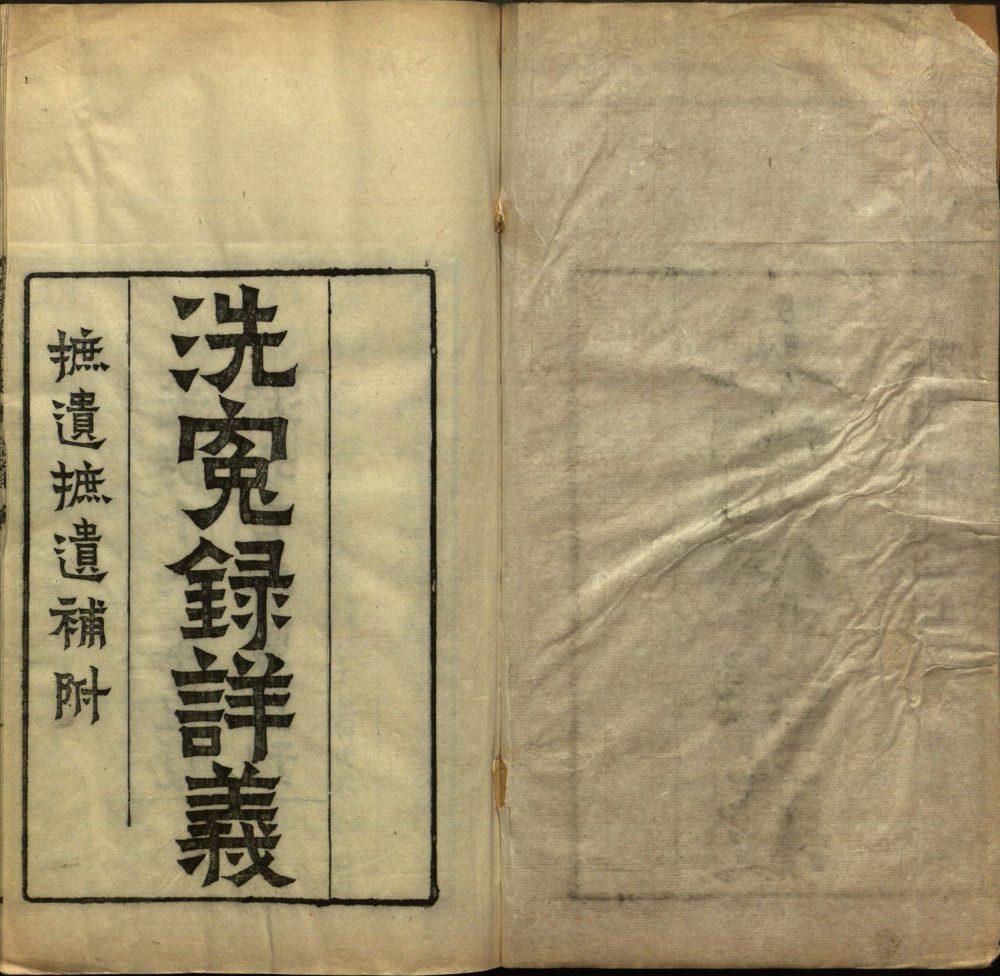 洗寃録詳義
摭遺摭遺補附